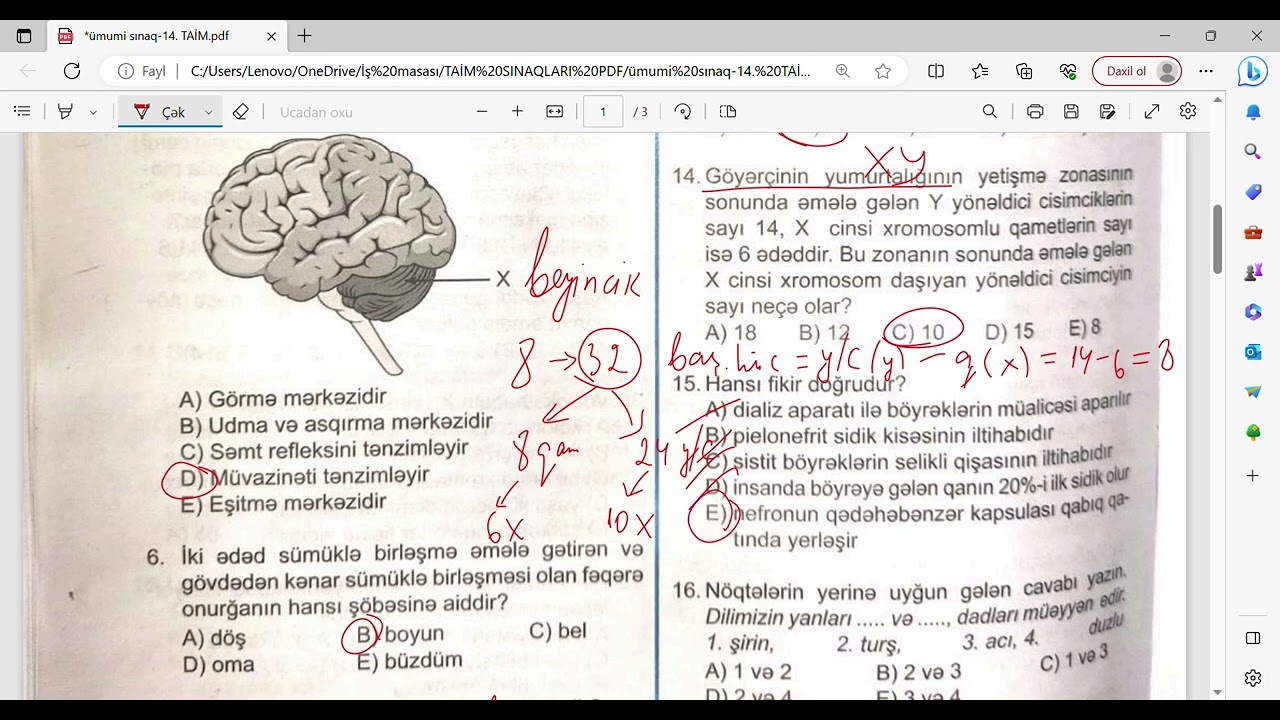 *ümumi sınaq-14. TAİM.pdf
Fayl
C:/Users/Lenovo/OneDrive/İş%20masası/TAİM%20SINAQLARI%20PDF/ümumi%20sınaq-14.%20TAİ...
Daxil ol
Çək
Ucadan oxu
1 / 3
X beyincik
8 → 32
8 qam 24 y/c
6X 10X
A) Görmə mərkəzidir
B) Udma və asqırma mərkəzidir
C) Səmt refleksini tənzimləyir
D) Müvazinəti tənzimləyir
E) Eşitmə mərkəzidir
6. İki ədəd sümüklə birləşmə əmələ gətirən və
gövdədən kənar sümüklə birləşməsi olan fəqərə
onurğanın hansı şöbəsinə aiddir?
A) döş B) boyun C) bel
D) oma E) büzdüm
XY
14. Göyərçinin yumurtalığının yetişmə zonasının
sonunda əmələ gələn Y yönəldici cisimciklərin
sayı 14, X cinsi xromosomlu qametlərin sayı
isə 6 ədəddir. Bu zonanın sonunda əmələ gələn
X cinsi xromosom daşıyan yönəldici cisimciyin
sayı neçə olar?
A) 18 B) 12 C) 10 D) 15 E) 8
baş. hüc = y/c (y) - q (x) = 14-6 = 8
15. Hansı fikir doğrudur?
A) dializ aparatı ilə böyrəklərin müalicəsi aparılır
B) pielonefrit sidik kisəsinin iltihabıdır
C) sistit böyrəklərin selikli qişasının iltihabıdır
D) insanda böyrəyə gələn qanın 20%-i ilk sidik olur
E) nefronun qədəhəbənzər kapsulası qabıq qa-
tında yerləşir
16. Nöqtələrin yerinə uyğun gələn cavabı yazın.
Dilimizin yanları ..... və ....., dadları müəyyən edir.
1. şirin, 2. turş, 3. acı, 4. duzlu
A) 1 və 2 B) 2 və 3 C) 1 və 3
D) 2 və 4 E) 3 və 4